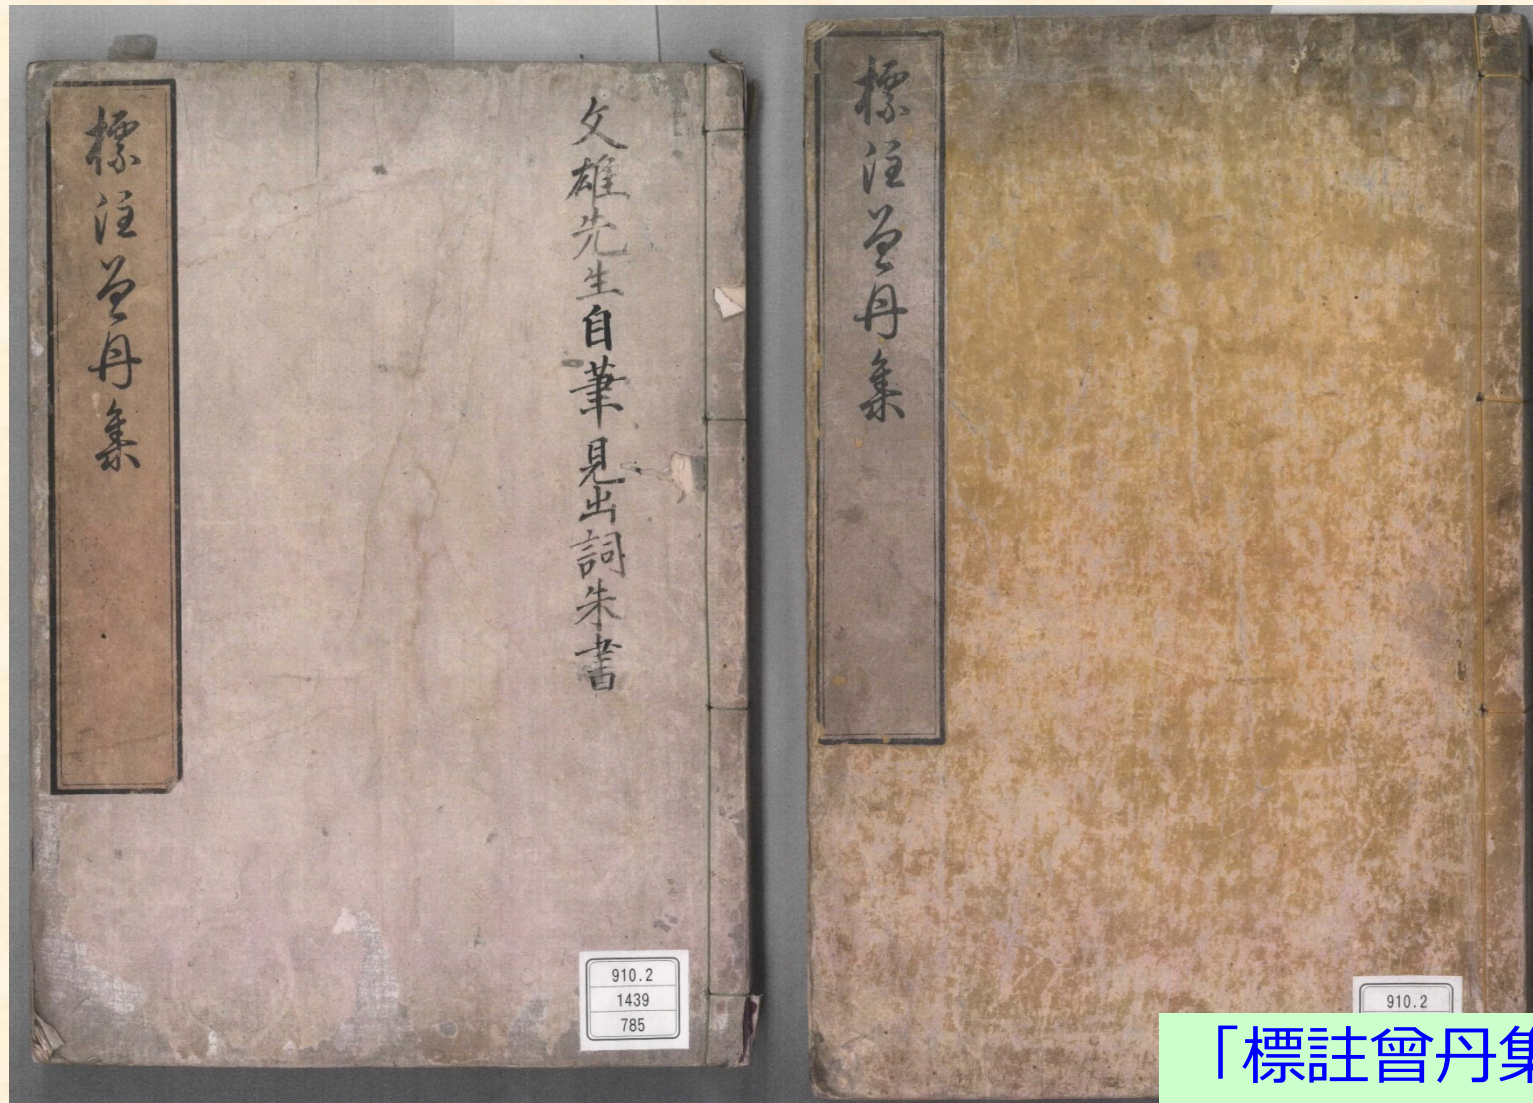 標注曽丹集
文雄先生自筆見出詞朱書
910.2
1439
785
標注曽丹集
910.2
「標註曾丹集